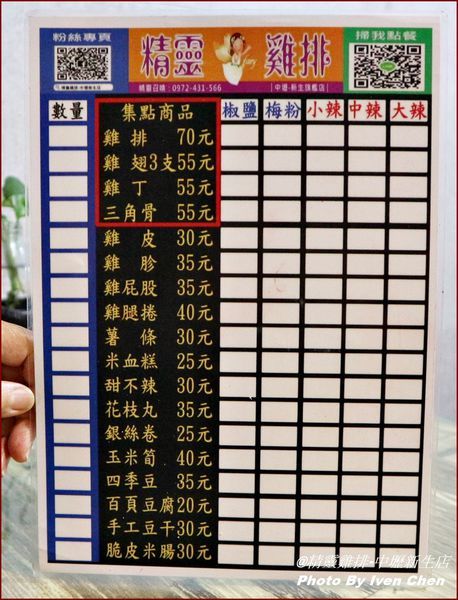 粉絲專頁
精靈雞排
掃我點餐
精靈召喚：0972-431-566
中壢-新生旗艦店
數量 集點商品 椒鹽 梅粉 小辣 中辣 大辣
雞排 70元
雞翅3支55元
雞丁 55元
三角骨 55元
雞皮 30元
雞胗 35元
雞屁股 35元
雞腿捲 40元
薯條 30元
米血糕 25元
甜不辣 30元
花枝丸 35元
銀絲卷 25元
玉米筍 40元
四季豆 35元
百頁豆腐20元
手工豆干30元
脆皮米腸30元
@精靈雞排-中壢新生店
Photo By Iven Chen